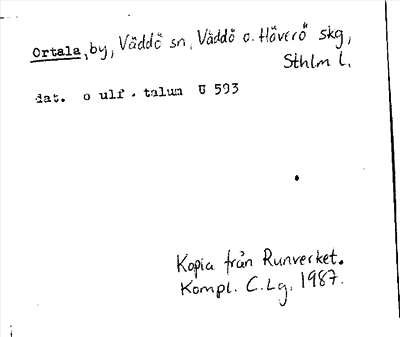 Ortala, by, Väddö sn, Väddö o. Häverö skg,
Sthlm l.
dat. o ulf . talum U 593
Kopia från Runverket.
Kompl. C.Lg. 1987.